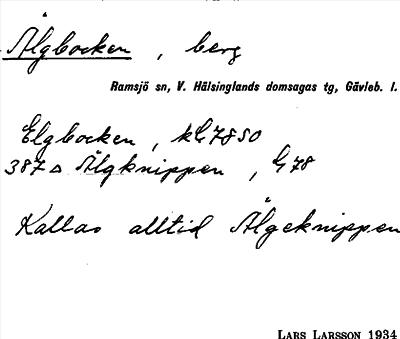 Älgbocken, berg
Ramsjö sn, V. Hälsinglands domsagas tg, Gävleb. l.
Elgbocken, kG7850
387 ▵ Älgknippen, G78
Kallas alltid Älgeknippen
LARS LARSSON 1934